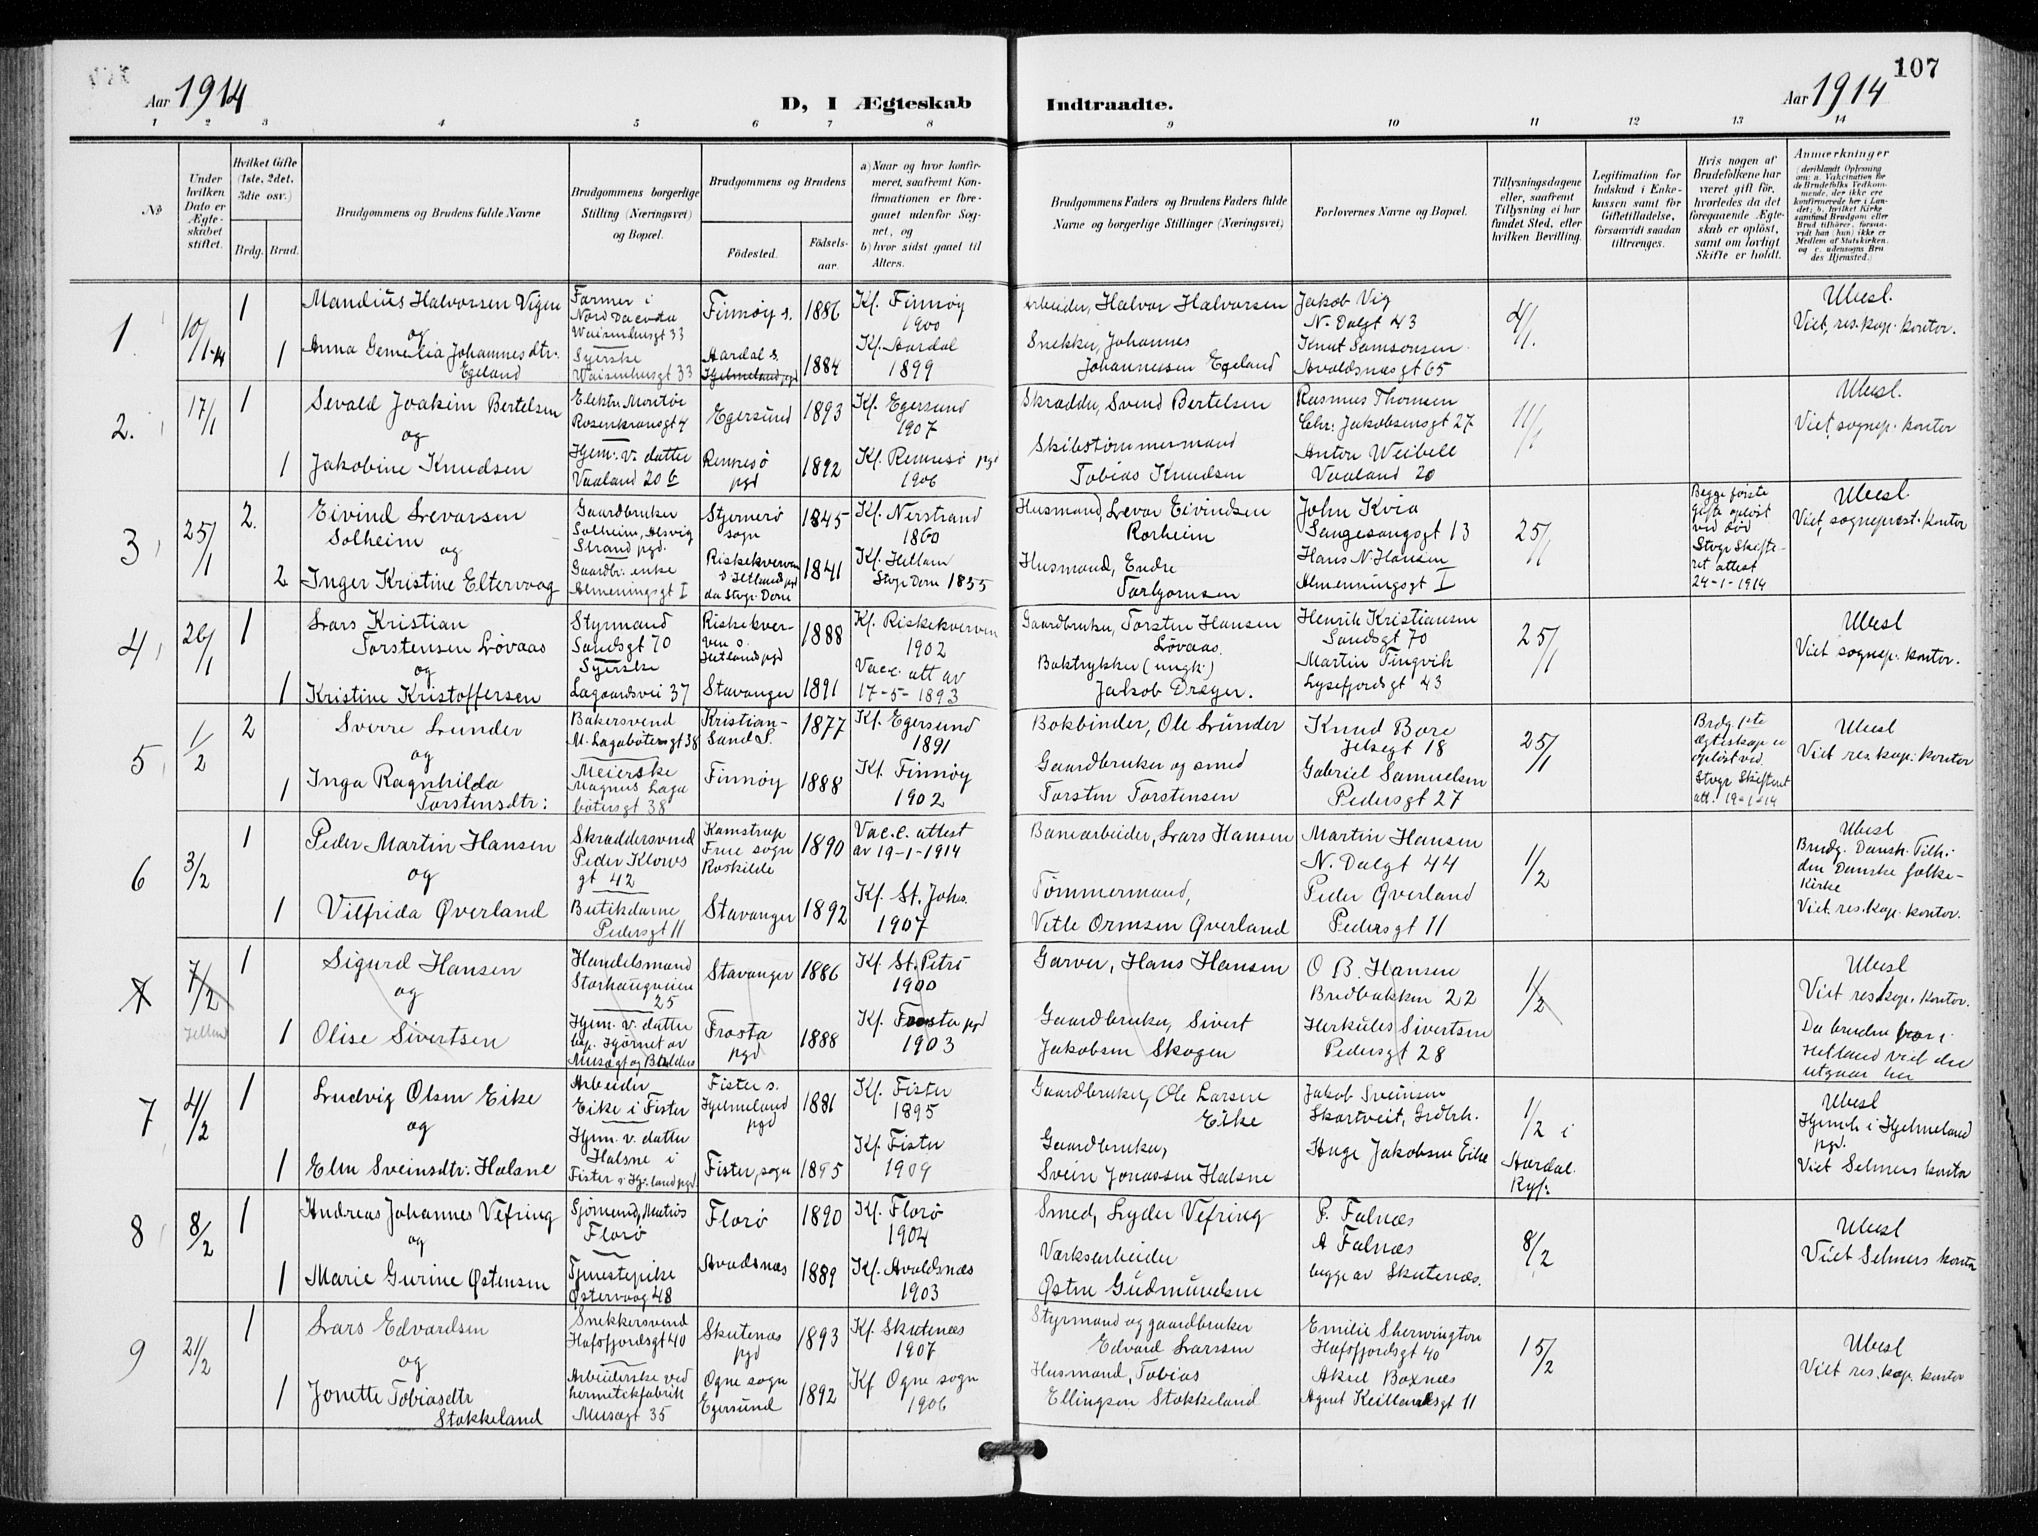 107
Aar 1914
D, I Ægteskab Indtraadte.
Aar 1914
1 2 3 4 5 6 7 8 9 10 11 12 13 14
No
Under hvilken Dato er Ægteskabet stiftet.
Hvilket Gifte (1ste, 2det, 3die osv.)
Brdg. Brud.
Brudgommens og Brudens fulde Navne
Brudgommens borgerlige Stilling (Næringsvei) og Bopæl.
Brudgommens og Brudens
Födested.
Födselsaar.
a) Naar og hvor konfirmeret, saafremt Konfirmationen er foregaaet udenfor Sognet, og
b) hvor sidst gaaet til Alters.
Brudgommens Faders og Brudens Faders fulde Navne og borgerlige Stillinger (Næringsvei)
Forlovernes Navne og Bopæl.
Tillysningsdagene eller, saafremt Tillysning ei har fundet Sted, efter hvilken Bevilling.
Legitimation for Indskud i Enkekassen samt for Giftetilladelse, forsaavidt saadan tiltrænges.
Hvis nogen af Brudefolkene har været gift för, hvorledes da det foregaaende Ægteskab er oplöst, samt om lovligt Skifte er holdt.
Anmærkninger
(deriblandt Oplysning om: a. Vakcination for de Brudefolks Vedkommende, der ikke ere konfirmerede her i Landet; b. hvilket Kirkesamfund Brudgom eller Brud tilhörer, forsaavidt han (hun) ikke er Medlem af Statskirken, og c. udensogns Brudes Hjemsted.)
1
10/1-14
1
Mandius Halvorsen Vigen
og
1
Anna Gemelia Johannesdtr. Egeland
Farmer i
Nord Dacoda
Waisenhusgt 33
Syerske
Waisenhusgt 33
Finnøy s. 1886
Aardal s.
Hjelmeland pgd 1884
Kf. Finnøy
1900
Kf. Aardal
1899
Arbeider, Halvor Halvorsen
Snekker, Johannes
Johannesen Egeland
Jakob Vig
N. Dalgt 43
Knut Samsonsen
Avaldsnæsgt 65
4/1.
Ubesl.
Viet, res. kap. kontor.
2.
17/1
1
Sevald Joakim Bertelsen
og
1
Jakobine Knudsen
Elektr. Montør
Rosenkransgt 4
Hjem. v. datter
Vaaland 20 b
Egersund 1893
Rennesø
pgd 1892
Kf. Egersund
1907
Kf. Rennesø pgd
1906
Skrædder, Svend Bertelsen
Skibstømmermand
Tobias Knudsen
Rasmus Thomsen
Chr. Jakobsensgt 27
Anton Weibell
Vaaland 20
11/1
Ubesl.
Viet, sognep. kontor
3
25/1
2.
Eivind Levarsen
Solheim
og
2
Inger Kristine Eltervaag
Gaardbruker
Solheim, Alsvig
Strand pgd.
Gaardbr. enke
Almeningsgt I
Stjernerø
sogn 1845
Riskekverven
s Hetland pgd
da Stvgr. Dom 1841
Kf. Nerstrand
1860
Kf. Hetland
Stvgr Dom 1855
Husmand, Levar Eivindsen
Rorheim
Husmand, Endre
Torbjørnsen
John Kvia
Sangesangsgt 13
Hans N. Hansen
Almenningsgt I
25/1
Begge første
Gifte opløst
ved død
Stvgr Skifteret attest
24-1-1914
Ubesl.
Viet, sogneprest. kontor
4
26/1
1
Lars Kristian
Torstensen Løvaas
og
1
Kristine Kristoffersen
Styrmand
Sandsgt 70
Syerske
Lagaardsvei 37
Riskekverven s.
Hetland pgd 1888
Stavanger 1891
Kf. Riskekverven
1902
Vacc. att av
17-5-1893
Gaardbruker, Torsten Hansen
Løvaas.
Boktrykker (ungk.)
Jakob Dreyer.
Henrik Kristiansen
Sandsgt 70
Martin Tingvik
Lysefjordsgt 43
25/1
Ubesl
Viet sognep. kontor.
5
1/2
2
Sverre Lunder
og
1
Inga Ragnhilda
Torstensdtr:
Bakersvend
M. Lagabøtersgt 38
Meierske
Magnus Lagabøtersgt 38
Kristiansand S. 1877
Finnøy 1888
Kf. Egersund
1891
Kf. Finnøy
1902
Bokbinder, Ole Lunder
Gaardbruker og smed
Torsten Torstensen
Knud Bore
Jelsegt 18
Gabriel Samuelsen
Pedersgt 27
25/1
Brdg. 1ste
ægteskap er
opløst ved
Stvgr Skifteret
att. 19-1-14
Ubesl
Viet res. kap. kontor
6
3/2
1
Peder Martin Hansen
og
1
Vilfrida Øverland
Skræddersvend
Peder Klows
gt 42
Butikdame
Pedersgt 11
Kamstrup
Frue sogn
Roskilde 1890
Stavanger 1892
Vacc. attest
av 19-1-1914
Kf. St. Johs.
1907
Banearbeider, Lars Hansen
Tømmermand,
Vetle Ormsen Øverland
Martin Hansen
N. Dalgt 44
Peder Øverland
Pedersgt 11
1/2
Ubesl
Brudg. Dansk. Tilh.
den Danske folkekirke
Viet. res. kap. kontor.
7
7/2
Hetland
1
Sigurd Hansen
og
1
Olise Sivertsen
Handelsmand
Storhaugveien
25
Hjem. v. datter
bep. Hjørnet av
Musægt og Baldersgt
Stavanger 1886
Frosta
pgd 1888
Kf. St. Petri
1900
Kf. Frosta pgd
1903
Garver, Hans Hansen
Gaardbruker, Sivert
Jakobsen Skogen
O B. Hansen
Bredbakken 22
Herkules Sivertsen
Pedersgt 28
1/2
Ubesl
Viet res. kap. kontor.
Da bruden bor i
Hetland viet der
utgaar her
7
4/2
1
Ludvig Olsen Eike
og
1
Elen Sveinsdtr: Halsne
Arbeider
Eike i Fister
Hjem. v. datter
Halsne i
Fister s Hj.land pgd
Fister s.
Hjelmeland
pgd 1881
Fister, sogn 1895
Kf. Fister
1895
Kf. Fister
1909
Gaardbruker, Ole Larsen
Eike
Gaardbruker,
Svein Jonassen Halsne
Jakob Sveinsen
Skartveit, Grdbrk.
Aage Jakobsen Eike
1/2 i
Aardal.
Ryf.
Ubesl
Hjemh i Hjelmeland
pgd.
Viet Selmers kontor
8
8/2
1
Andreas Johannes Vefring
og
1
Marie Gurine Østensen
Sjømand, Matros
Florø
Tjenestepike
Østervaag 48
Florø 1890
Avaldsnæs 1889
Kf. Florø
1904
Kf. Avaldsnæs
1903
Smed, Lyder Vefring
Værksarbeider
Østen Gudmundsen
P. Falnæs
A Falnæs
begge av Skutenæs.
8/2
Ubesl
Viet Selmers kontor
9
21/2
1
Lars Edvardsen
og
1
Jonette Tobiasdtr
Stokkeland
Snekkersvend
Hafsfjordsgt 40
Arbeiderske ved
hermetikfabrik
Musægt 35
Skutenæs
pgd 1893
Ogne sogn
Egersund 1892
Kf. Skutenæs
1907
Kf Ogne sogn
1906
Styrmand og gaardbruker
Edvard Larssen
Husmand, Tobias
Ellingsen Stokkeland
Emilie Sherwington
Hafsfjordsgt 40
Aksel Boxnæs
Agnet Keillandsgt 11
15/2
Ubesl
Viet res. kap. kontor